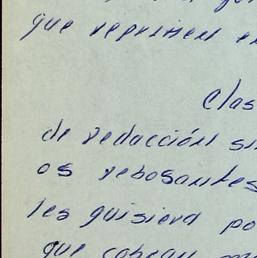 que reprimen e
Clas
de redacción si
os rebosantes
les quisiera po
que cobran